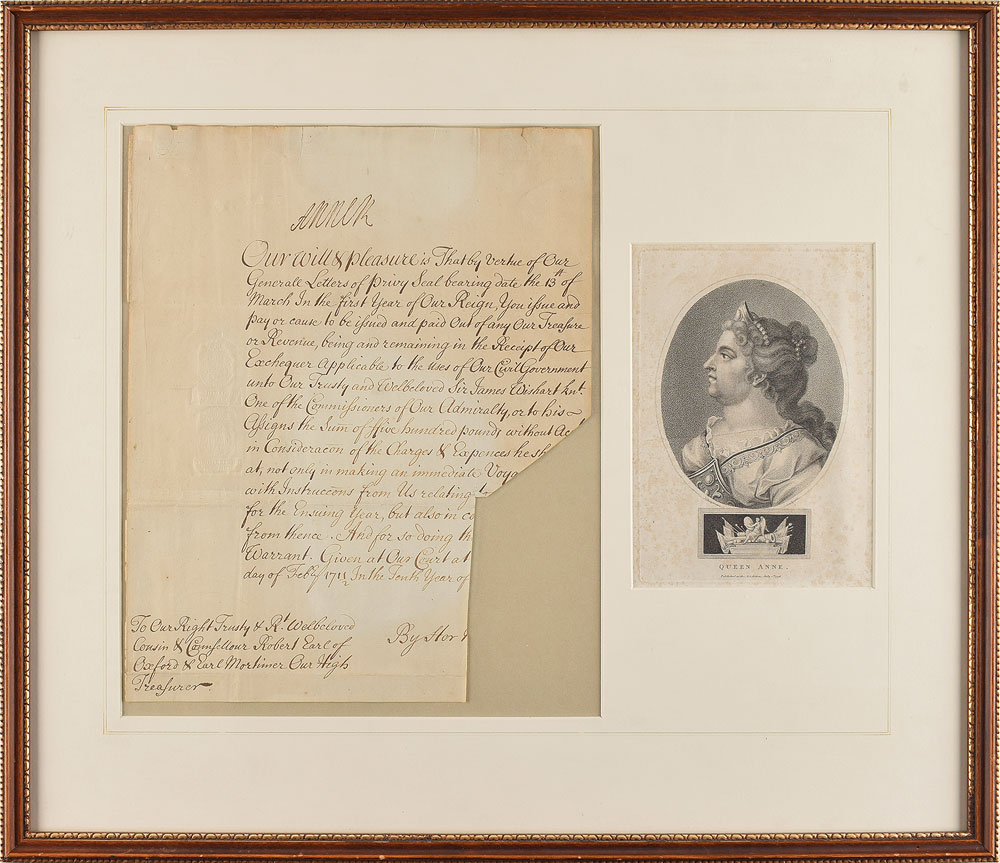 ANNE R
Our Will & pleasure is That by Vertue of Our
Generall Letters of Privy Seal bearing date the 13th of
March In the first Year of Our Reign, You issue and
pay or cause to be issued and paid Out of any Our Treasure
or Revenue, being and remaining in the Receipt of Our
Exchequer Applicable to the Uses of Our Civil Government
unto Our Trusty and Welbeloved Sir James Wishart Knt.
One of the Commissioners of Our Admiralty, or to his
Assigns the Sum of ffive hundred pounds without Acc
in Consideracon of the Charges & Expences he sh
at, not only in making an immediate Voya
with Instruccons from Us relating t
for the Ensuing Year, but also in co
from thence. And for so doing th
Warrant. Given at Our Court at
day of Febry 1711 In the Tenth Year of
To Our Right Trusty & Rt. Welbeloved
Cousin & Counsellour Robert Earl of
Oxford & Earl Mortimer Our High
Treasurer
By Her
QUEEN ANNE.